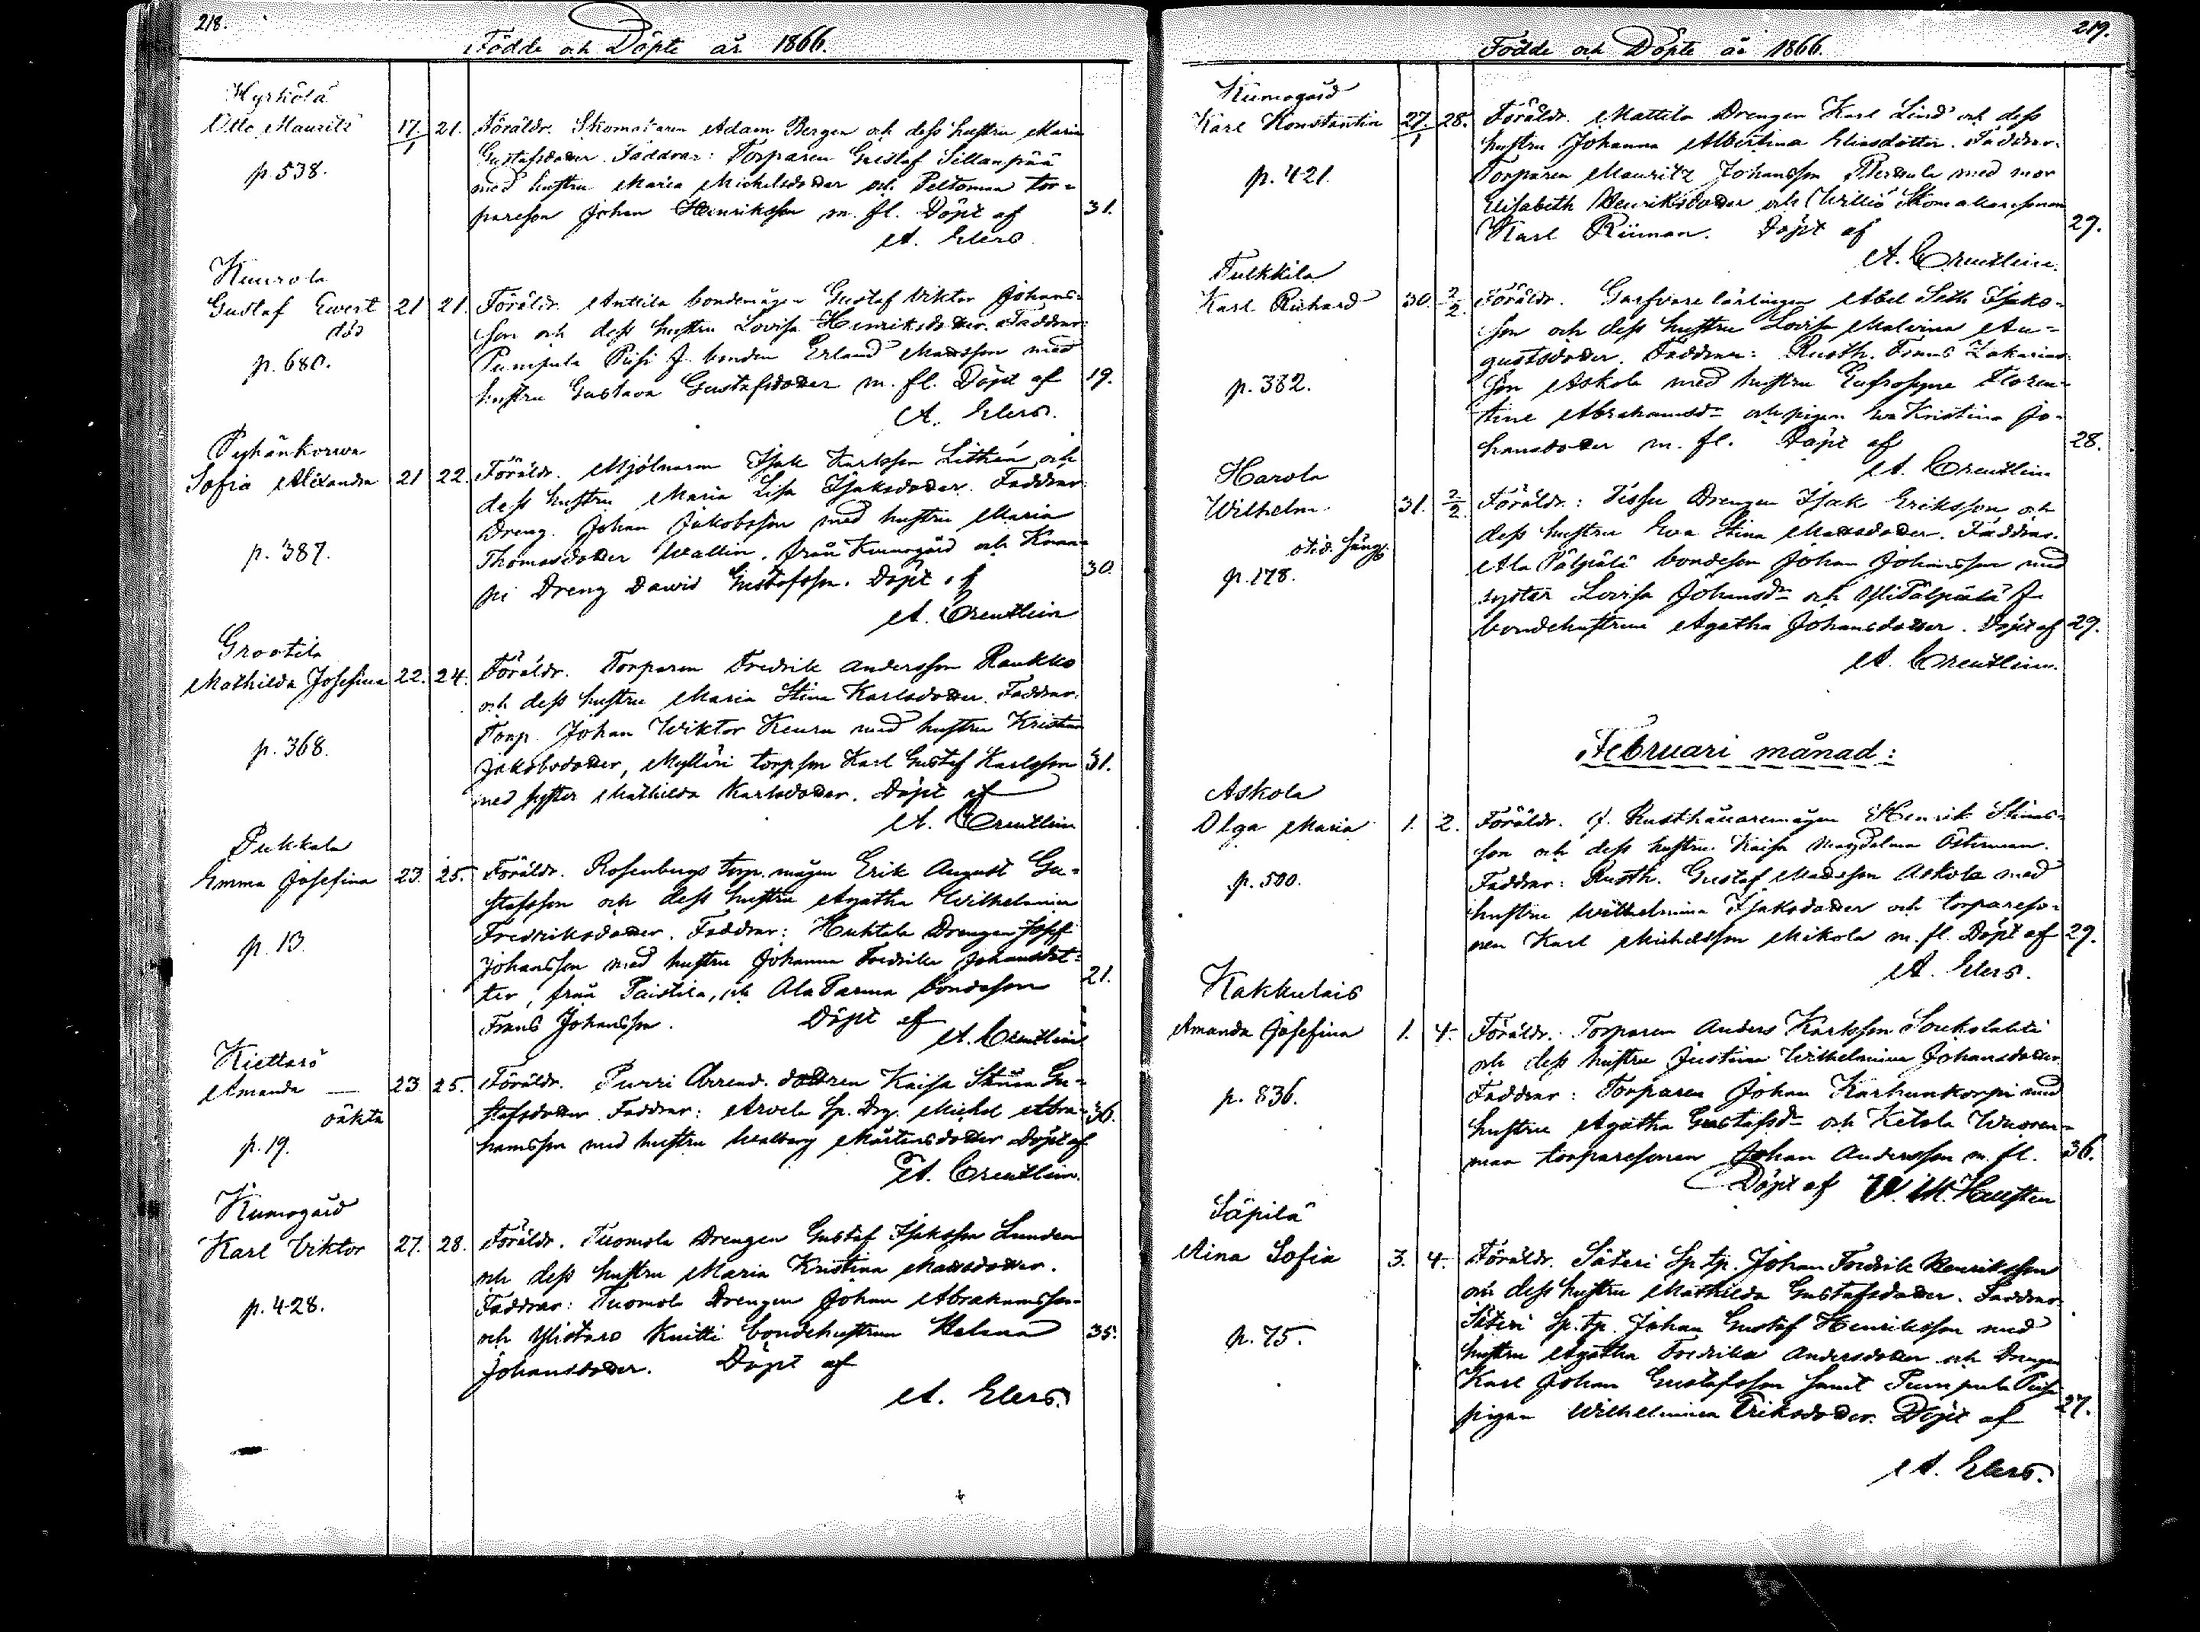 218.
Födde och Döpte år 1866.
Hyrkölä
Otto Mauritz 17/1 21. Föräldr. Skomakaren Adam Bergen och dess hustru Maria
Gustafsdotter. Faddrar: Torparen Gustaf Sillanpää
p. 538.
med hustru Maria Michelsdotter och Peltomaa tor-
pareson Johan Henriksson m. fl. Döpt af 31.
A. Elers.
Kuurola
Gustaf Ewert 21 21. Föräldr. Anttila bondemågen Gustaf Viktor Johans-
död
son och dess hustru Lovisa Henriksdotter. Faddrar:
p. 680.
Pumpula bonden Erland Mattsson med
hustru Gustava Gustafsdotter m. fl. Döpt af 19.
A. Elers.
Pyhänkorwa
Sofia Alexandra 21 22. Föräldr. Mjölnaren Isak Karlsson Lithén och
dess hustru Maria Lisa Isaksdotter. Faddrar:
Dreng. Johan Jakobsson med hustru Maria
p. 387.
Thomasdotter Wallin, från Kumogård och
Dreng Dawid Gustafsson. Döpt af 30.
A. Creutlein
Grootila
Mathilda Josefina 22. 24. Föräldr. Torparen Fredrik Andersson Raukko
och dess hustru Maria Stina Karlsdotter. Faddrar.
Torp. Johan Wiktor Keura med hustru Kristina
p. 368.
Jakobsdotter, Mylläri torpson Karl Gustaf Karlsson 31.
med syster Mathilda Karlsdotter. Döpt af
A. Creutlein
Pukkala
Emma Josefina 23. 25. Föräldr. Rosenbergs torp. mågen Erik August Gu-
stafsson och dess hustru Agatha Wilhelmina
Fredriksdotter. Faddrar: Huhtala Drengen Josef
p. 13.
Johansson med hustru Johanna Fredrika Johansdot-
ter, från Paistila, och Ala Parma bondeson 21.
Frans Johansson. Döpt af
A. Creutlein
Kiettarö
Amanda — 23 25. Föräldr. Purri Arrend. dottren Kaisa Stina Gu-
oäkta
stafsdotter Faddrar: Arvela Sp. Drg. Michel Abra- 36.
p. 19.
hamsson med hustru Walborg Mårtensdotter Döpt af
A. Creutlein.
Kumogård
Karl Viktor 27. 28. Föräldr. Tuomola Drengen Gustaf Isaksson Lunden
och dess hustru Maria Kristina Mattsdotter.
p. 428.
Faddrar: Tuomola Drengen Johan Abrahamsson
och Ylistaro Knitti bondehustrun Helena 35.
Johansdotter. Döpt af
A. Elers.
219.
Födde och Döpte år 1866.
Kumogård
Karl Konstantin 27./1 28. Föräldr. Mattila Drengen Karl Lind och dess
hustru Johanna Albertina Eliasdotter. Faddrar.
p. 421.
Torparen Mauritz Johansson med mor
Elisabeth Henriksdotter och Willio Skomakaresonen
Karl Riiman. Döpt af 29.
A. Creutlein.
Tulkkila
Karl Richard 30. 2/2. Föräldr. Garfvare lärlingen Abel Seth Isaks-
son och dess hustru Lovisa Malvina Au-
gustsdotter. Faddrar: Rusth. Frans Zakarias-
p. 382.
son Askola med hustru Eufrosyne Floren-
tine Abrahamsd:r och pigan Eva Kristina Jo-
hansdotter m. fl. Döpt af 28.
A. Creutlein
Harola
Wilhelm 31. 2/2. Föräldr: Tissu Drengen Isak Eriksson och
dess hustru Eva Stina Mattsdotter. Faddrar.
p. 178.
Ala Pälpälä bondeson Johan Johansson med
syster Lovisa Johansd:r och Yli Pälpälä
bondehustrun Agatha Johansdotter. Döpt af 29.
A. Creutlein.
Februari månad:
Askola
Olga Maria 1. 2. Föräldr. f. Rusthållaremågen Henrik
son och dess hustru Kaisa Magdalena Österman.
p. 500.
Faddrar: Rusth. Gustaf Mattsson Askola med
hustru Wilhelmina Isaksdotter och torpareso-
nen Karl Michelsson Mikola m. fl. Döpt af 29.
A. Elers.
Kakkulais
Amanda Josefina 1. 4. Föräldr. Torparen Anders Karlsson Soukolahti
och dess hustru Justina Wilhelmina Johansdotter
p. 836.
Faddrar: Torparen Johan Karhunkorpi med
hustru Agatha Gustafsd:r och Ketola Wuoren-
maa torparesonen Johan Andersson m. fl. 36.
Döpt af
Säpilä
Aina Sofia 3. 4. Föräldr. Säteri Sp. tp. Johan Fredrik Henriksson
och dess hustru Mathilda Gustafsdotter. Faddrar.
p. 75.
Säteri Sp. tp. Johan Gustaf Henriksson med
hustru Agatha Fredrika Andersdotter och Drengen
Karl Johan Gustafsson samt Pumpula
pigan Wilhelmina Eriksdotter. Döpt af 27.
A. Elers.